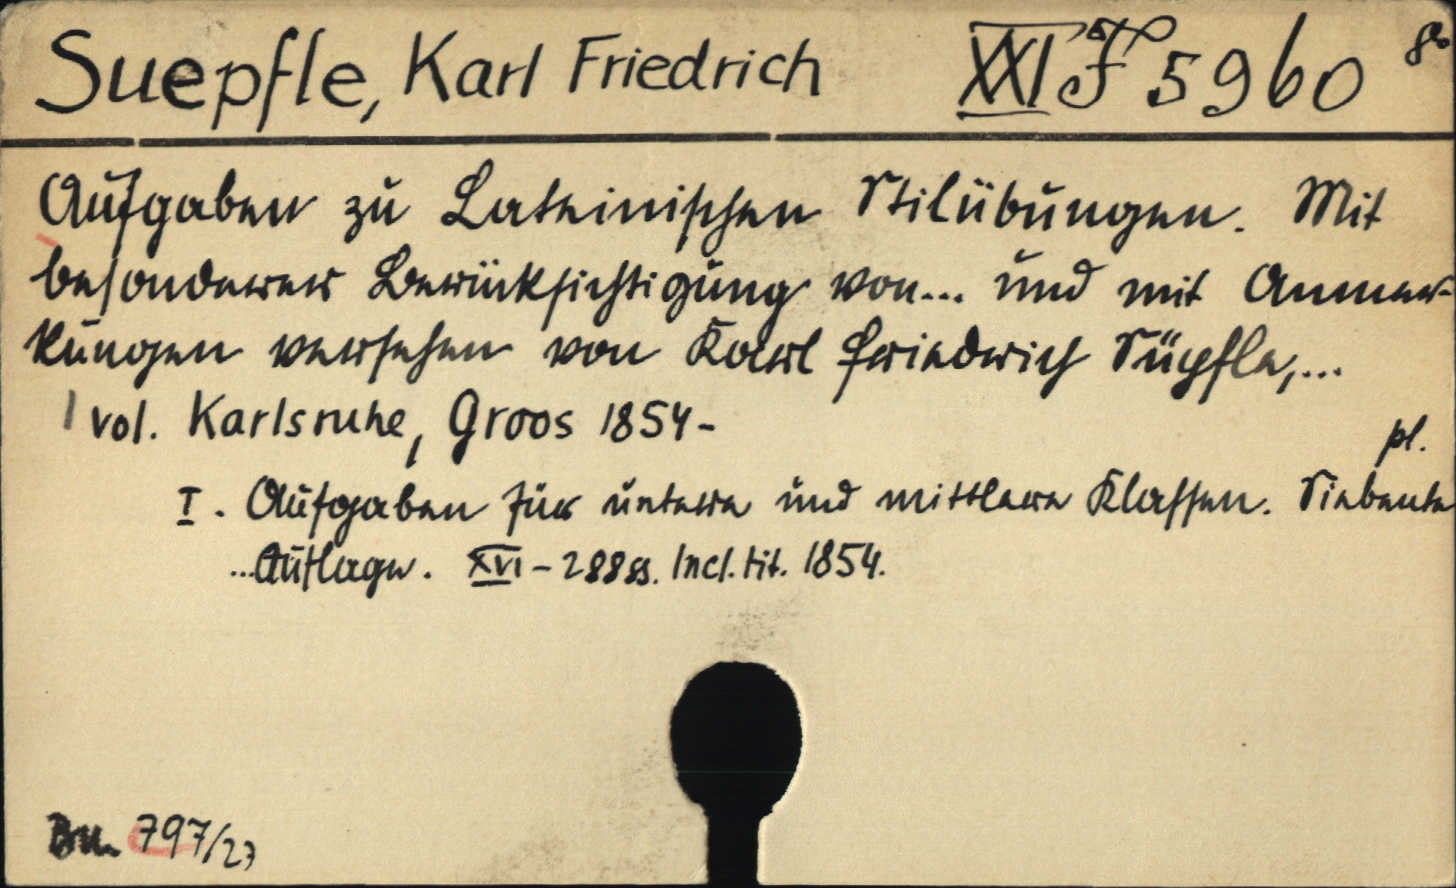 Suepfle, Karl Friedrich XXI F 5960 8o
Aufgaben zu Lateinischen Stilübungen. Mit
besonderer Berücksichtigung von... und mit Anmer-
kungen versehen von Karl Friedrich Süpfle,...
1 vol. Karlsruhe, Groos 1854-
pl.
I. Aufgaben für untere und mittlere Klassen. Siebente
...Auflage. XVI-288 ss. Incl. tit. 1854.
797/27